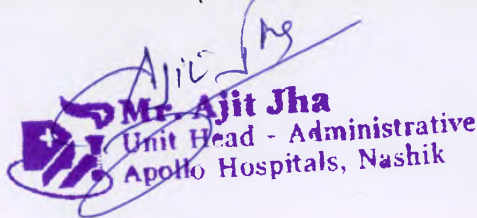 Ajit Jha
Mr. Ajit Jha
Unit Head - Administrative
Apollo Hospitals, Nashik